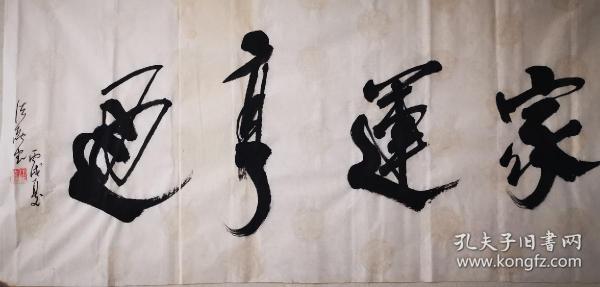 家運亨通
丙戌夏
孔夫子旧書网
www.kongfz.com